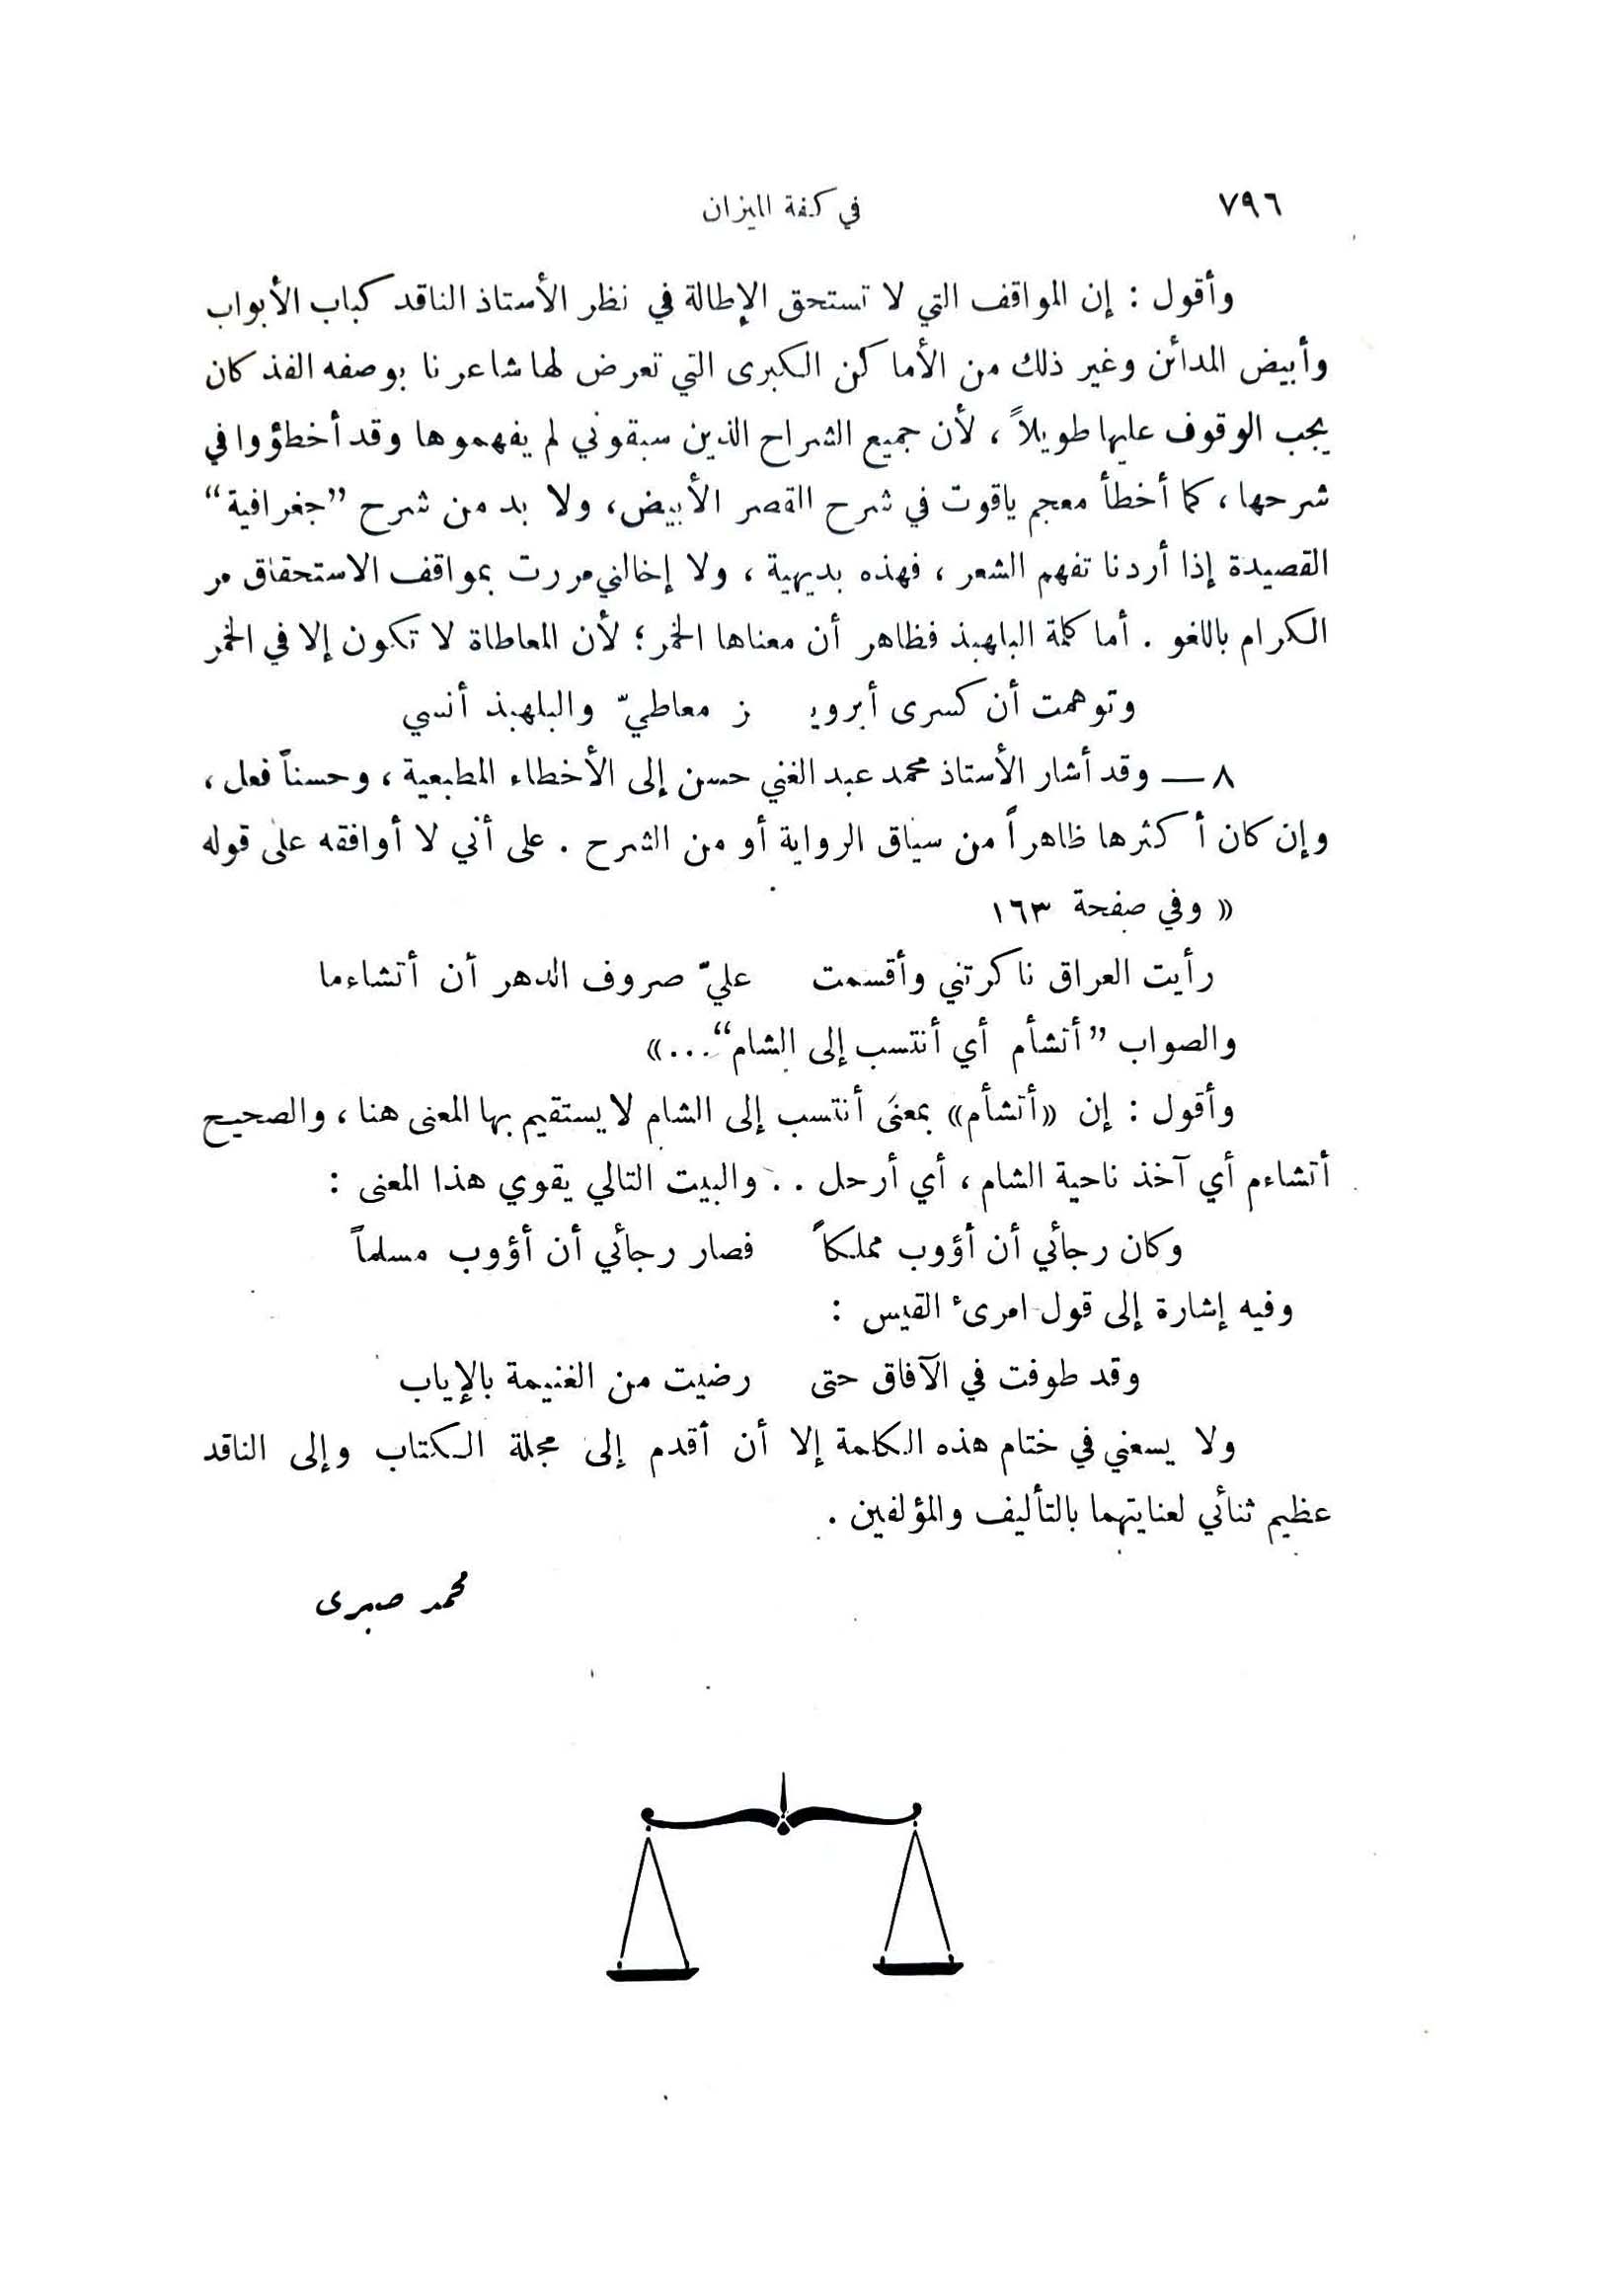 ٧٩٦ في كفة الميزان
وأقول : إن المواقف التي لا تستحق الإطالة في نظر الأستاذ الناقد كباب الأبواب
وأبيض المدائن وغير ذلك من الأماكن الكبرى التي تعرض لها شاعرنا بوصفه الفذ كان
يجب الوقوف عليها طويلاً ، لأن جميع الشراح الذين سبقوني لم يفهموها وقد أخطؤوا في
شرحها ، كما أخطأ معجم ياقوت في شرح القصر الأبيض ، ولا بد من شرح ”جغرافية“
القصيدة إذا أردنا تفهم الشعر ، فهذه بديهية ، ولا إخالني مررت بمواقف الاستحقاق مر
الكرام باللغو . أما كلمة البلهبذ فظاهر أن معناها الخمر ؛ لأن المعاطاة لا تكون إلا في الخمر
وتوهمت أن كسرى أبرويـ ز معاطيّ والبلهبذ أنسي
٨ — وقد أشار الأستاذ محمد عبد الغني حسن إلى الأخطاء المطبعية ، وحسناً فعل ،
وإن كان أكثرها ظاهراً من سياق الرواية أو من الشرح . على أني لا أوافقه على قوله
« وفي صفحة ١٦٣
رأيت العراق ناكرتني وأقسمت عليّ صروف الدهر أن أتشاءما
والصواب ”أتشأم أي أنتسب إلى الشام“...»
وأقول : إن «أتشأم» بمعنَى أنتسب إلى الشام لا يستقيم بها المعنى هنا ، والصحيح
أتشاءم أي آخذ ناحية الشام ، أي أرحل . . والبيت التالي يقوي هذا المعنى :
وكان رجائي أن أؤوب مملكاً فصار رجائي أن أؤوب مسلماً
وفيه إشارة إلى قول امرئ القيس :
وقد طوفت في الآفاق حتى رضيت من الغنيمة بالإياب
ولا يسعني في ختام هذه الكلمة إلا أن أقدم إلى مجلة الكتاب وإلى الناقد
عظيم ثنائي لعنايتهما بالتأليف والمؤلفين .
محمد صبرى